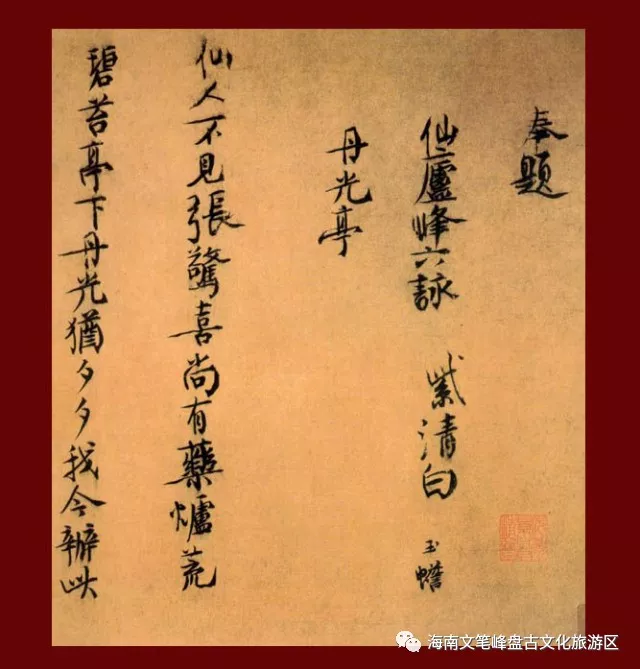 奉題
仙廬峰六詠 紫清白玉蟾
丹光亭
仙人不見張驚喜尚有藥爐荒
碧苔亭下丹光猶夕夕我今辦此
海南文笔峰盘古文化旅游区